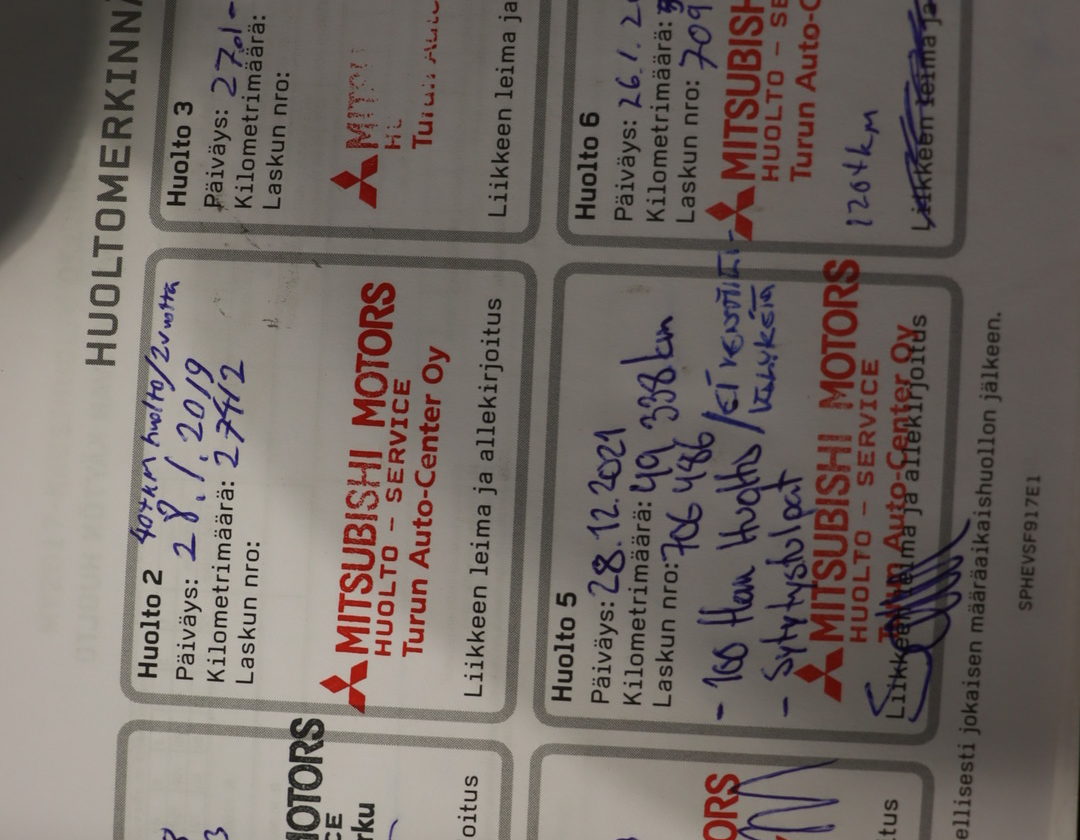 HUOLTOMERKINNÄ
Huolto 2
40tkm huolto/2vuotta
Päiväys: 28.1.2019
Kilometrimäärä: 27412
Laskun nro:
MITSUBISHI MOTORS
HUOLTO – SERVICE
Turun Auto-Center Oy
Liikkeen leima ja allekirjoitus
Huolto 3
Päiväys: 27.01-
Kilometrimäärä:
Laskun nro:
MITSU
HU
Turun Auto
Liikkeen leima ja
OTORS
CE
rku
oitus
Huolto 5
Päiväys: 28.12.2021
Kilometrimäärä: 49 338 km
Laskun nro: 706 486
- 100 tkm Huolto / EI VENTTIILI-
VÄLYKSIÄ
- Sytytystulpat
MITSUBISHI MOTORS
HUOLTO – SERVICE
Turun Auto-Center Oy
Liikkeen leima ja allekirjoitus
Huolto 6
Päiväys: 26.1.20
Kilometrimäärä: 5
Laskun nro: 709
MITSUBISH
HUOLTO – SE
Turun Auto-C
120tkm
Liikkeen leima ja
ORS
tus
ellisesti jokaisen määräaikaishuollon jälkeen.
SPHEVSF917E1